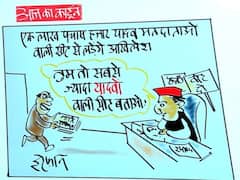 आज का कार्टून
एक लाख पचास हजार यादव मतदाताओं
वाली सीट से लड़ेंगे अखिलेश
तुम तो सबसे
ज्यादा यादवों
वाली सीट बताओ!
इरफान